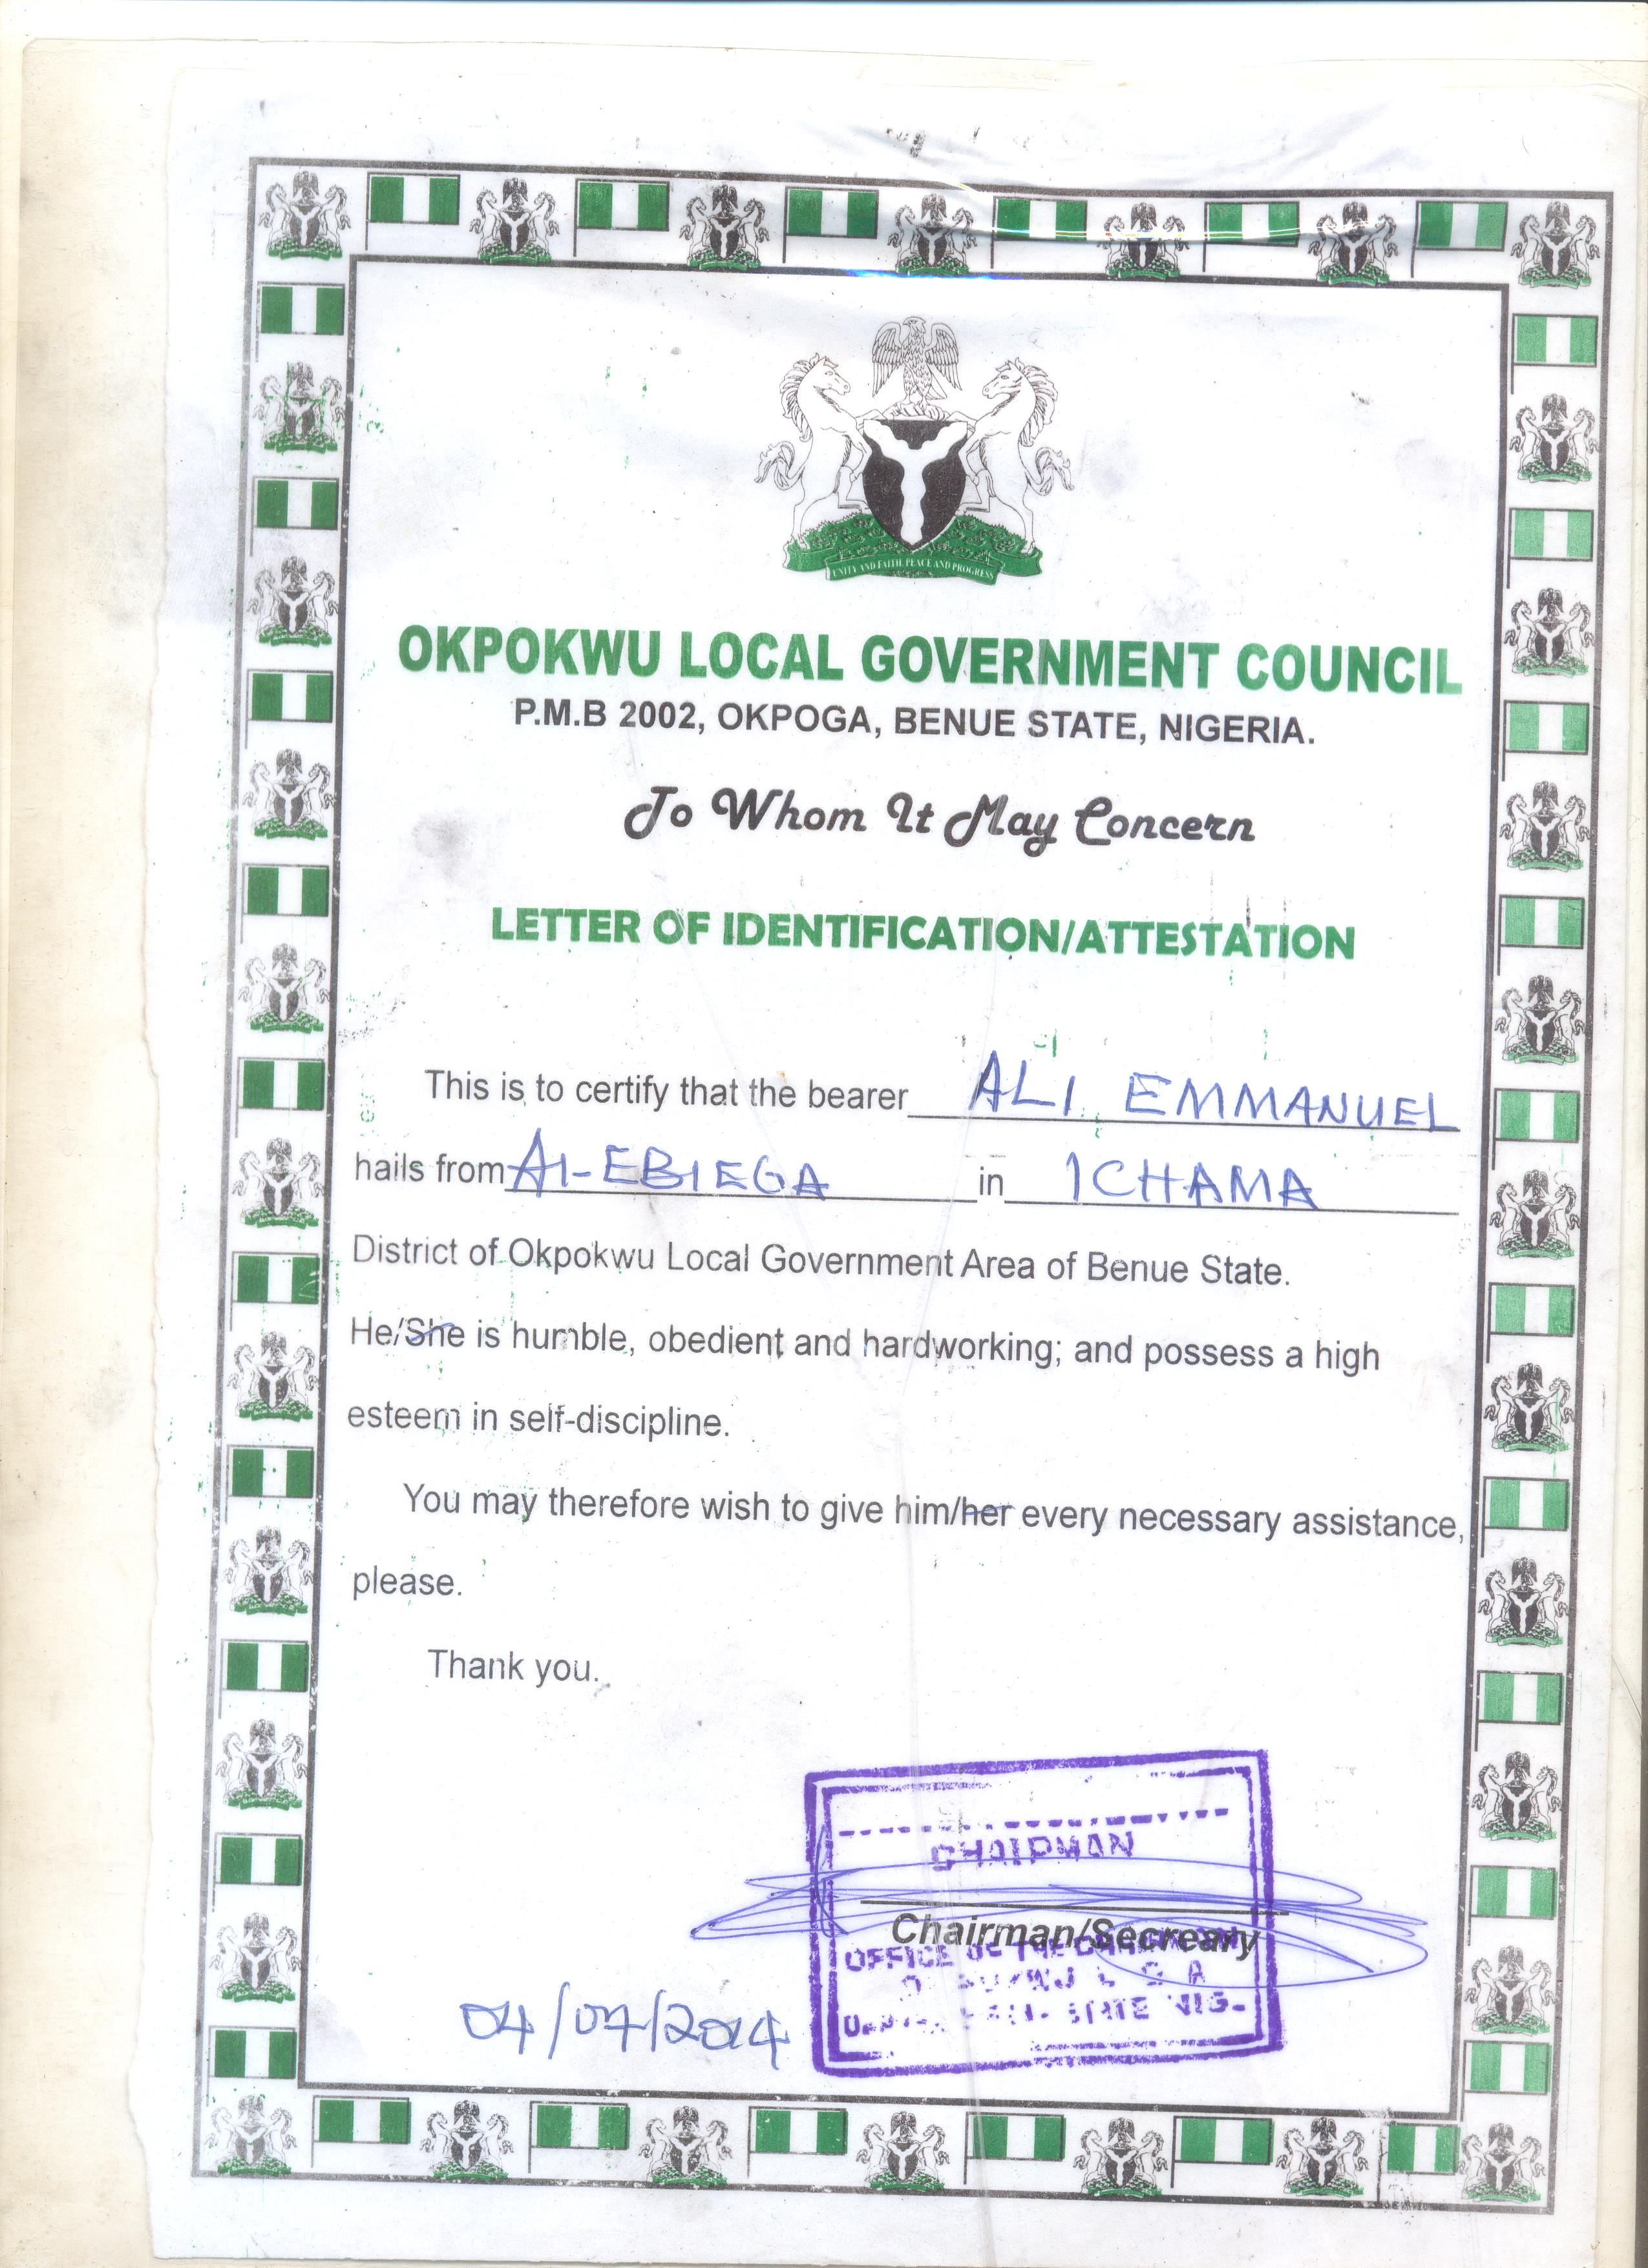 UNITY AND FAITH, PEACE AND PROGRESS
OKPOKWU LOCAL GOVERNMENT COUNCIL
P.M.B 2002, OKPOGA, BENUE STATE, NIGERIA.
To Whom It May Concern
LETTER OF IDENTIFICATION/ATTESTATION
This is to certify that the bearer ALI EMMANUEL
hails from AI-EBIEGA in ICHAMA
District of Okpokwu Local Government Area of Benue State.
He/She is humble, obedient and hardworking; and possess a high
esteem in self-discipline.
You may therefore wish to give him/her every necessary assistance,
please.
Thank you.
CHAIRMAN
Chairman/Secreary
OFFICE OF THE CHAIRMAN
L G A
STATE NIG.
04/07/2014